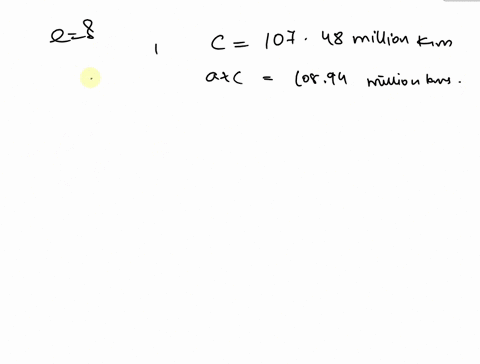 e=? , C = 107.48 million kms
a+c = 108.94 million kms.